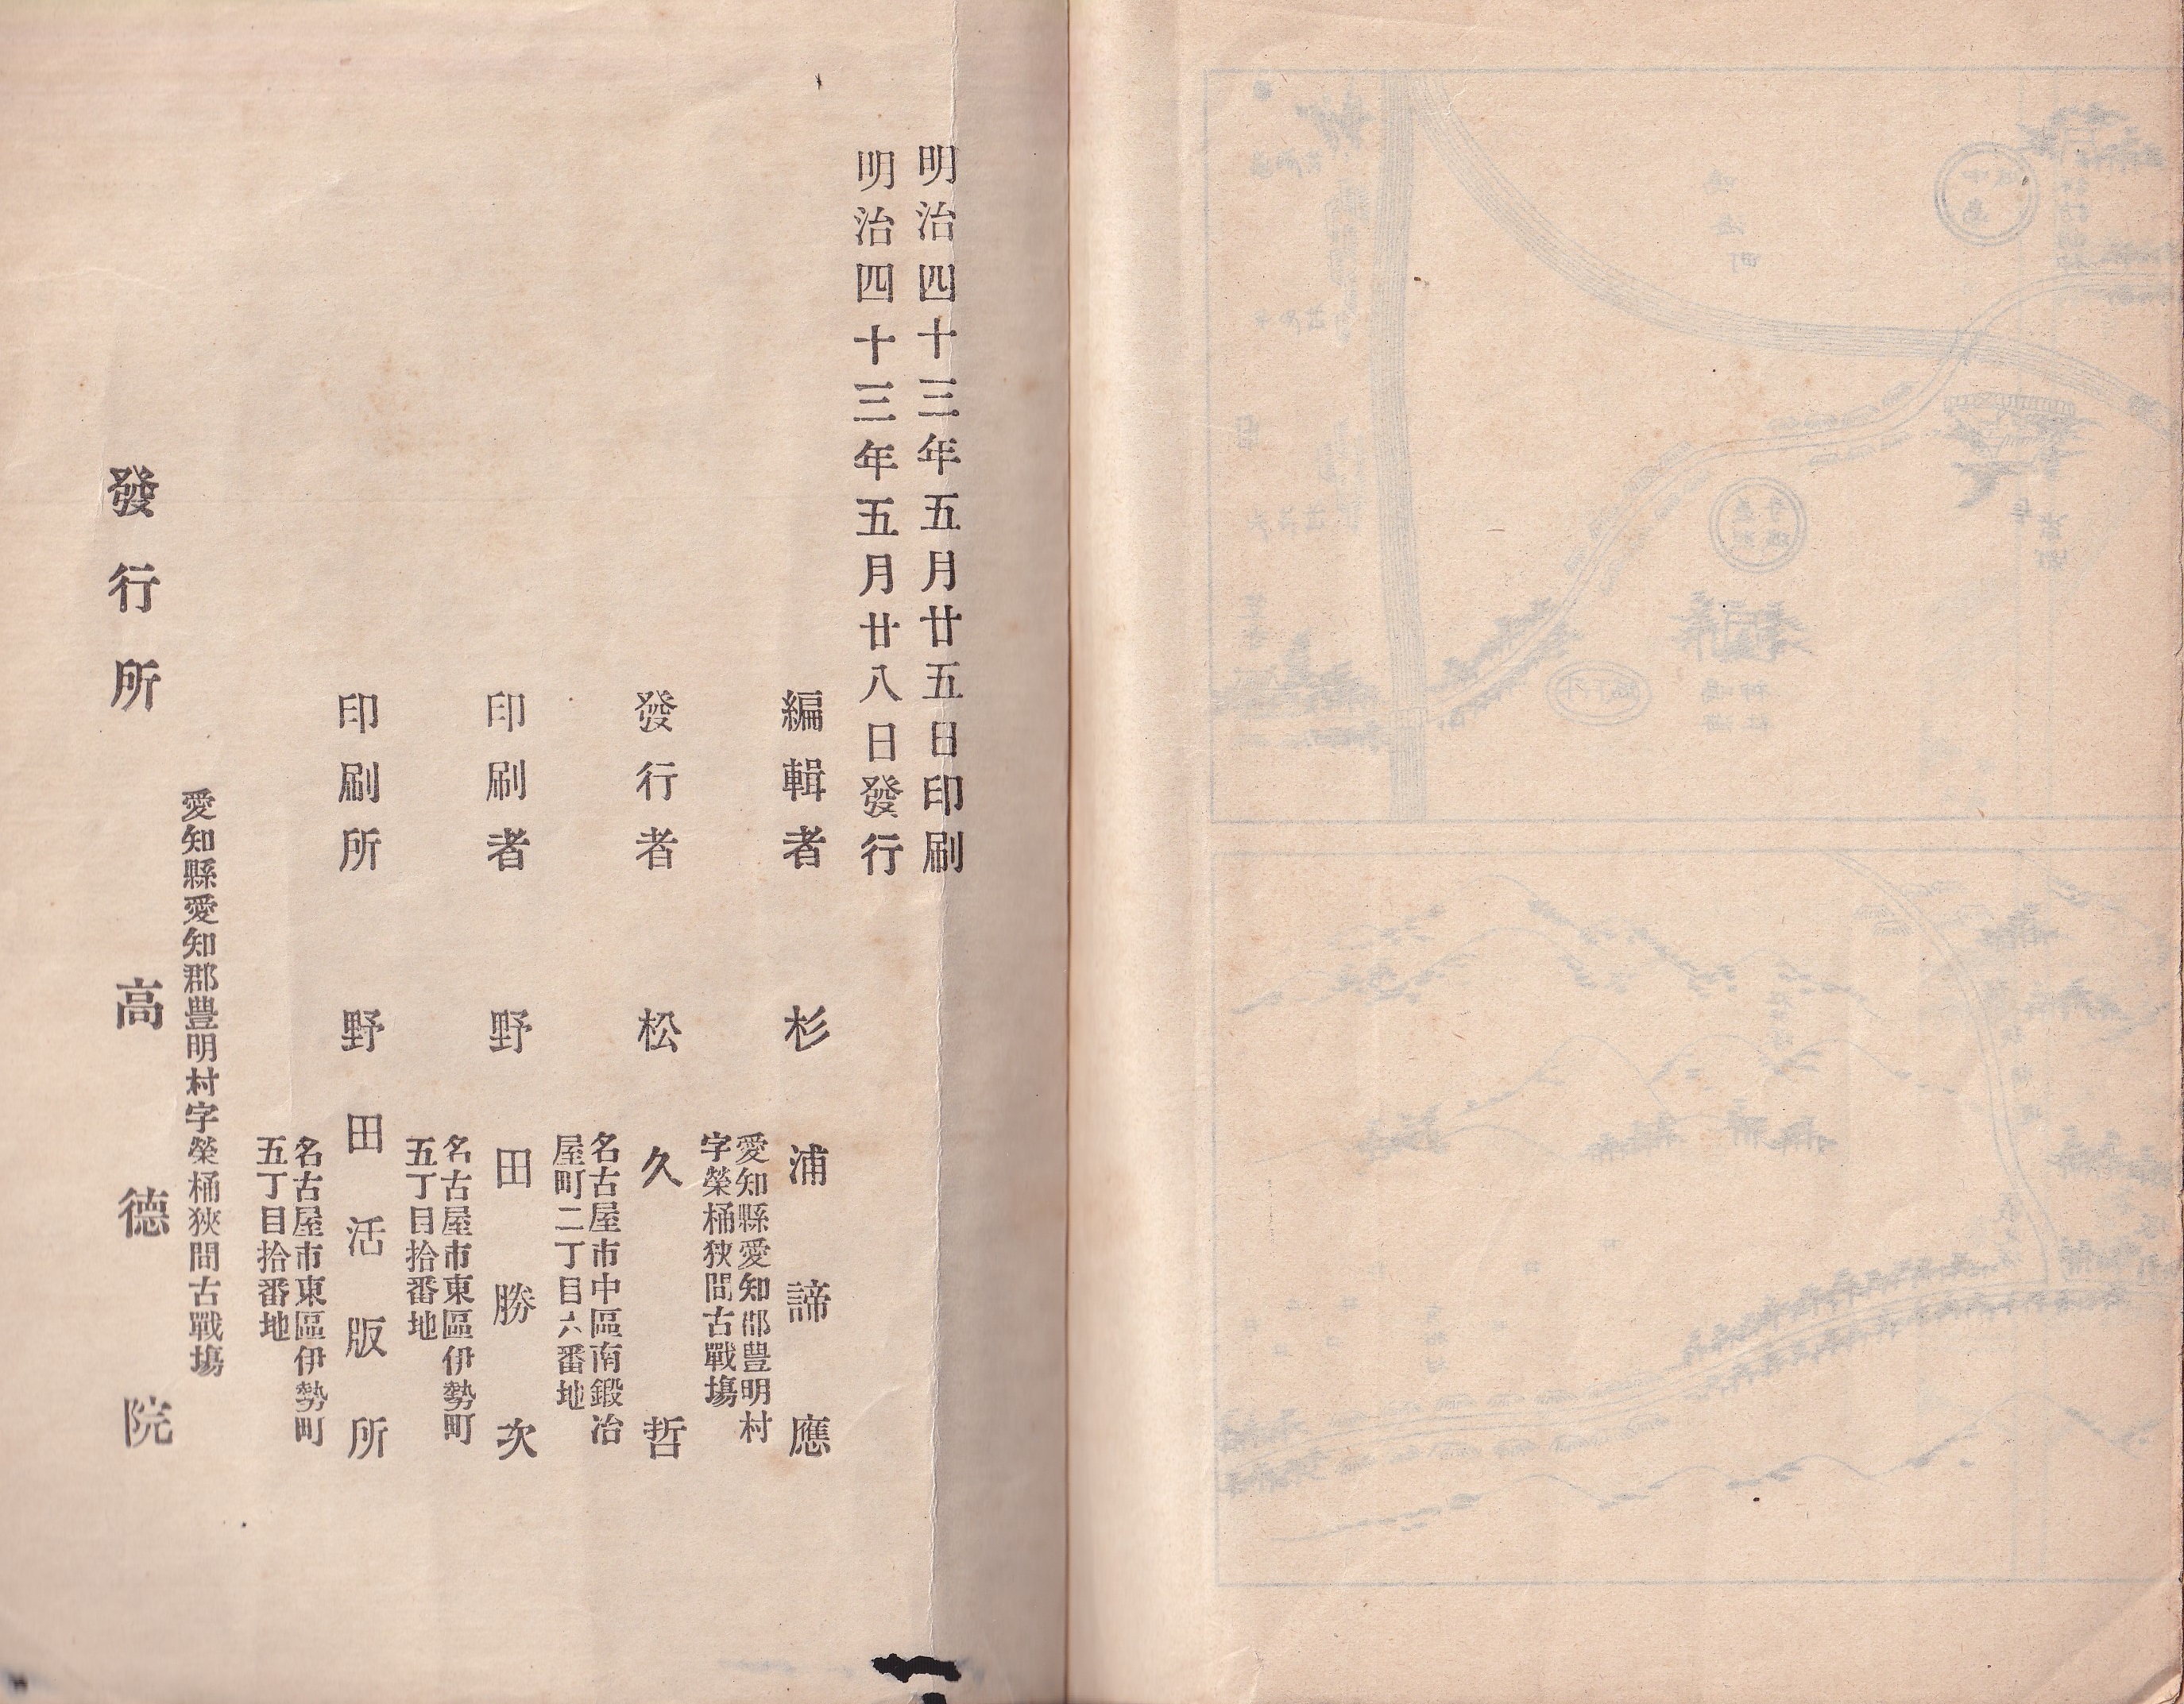 明治四十三年五月廿五日印刷
明治四十三年五月廿八日發行
編輯者 杉浦諦應
愛知縣愛知郡豊明村
字榮桶狹間古戰塲
發行者 松久哲
名古屋市中區南鍛冶
屋町二丁目六番地
印刷者 野田勝次
名古屋市東區伊勢町
五丁目拾番地
印刷所 野田活版所
名古屋市東區伊勢町
五丁目拾番地
愛知縣愛知郡豊明村字榮桶狹間古戰塲
發行所 高德院